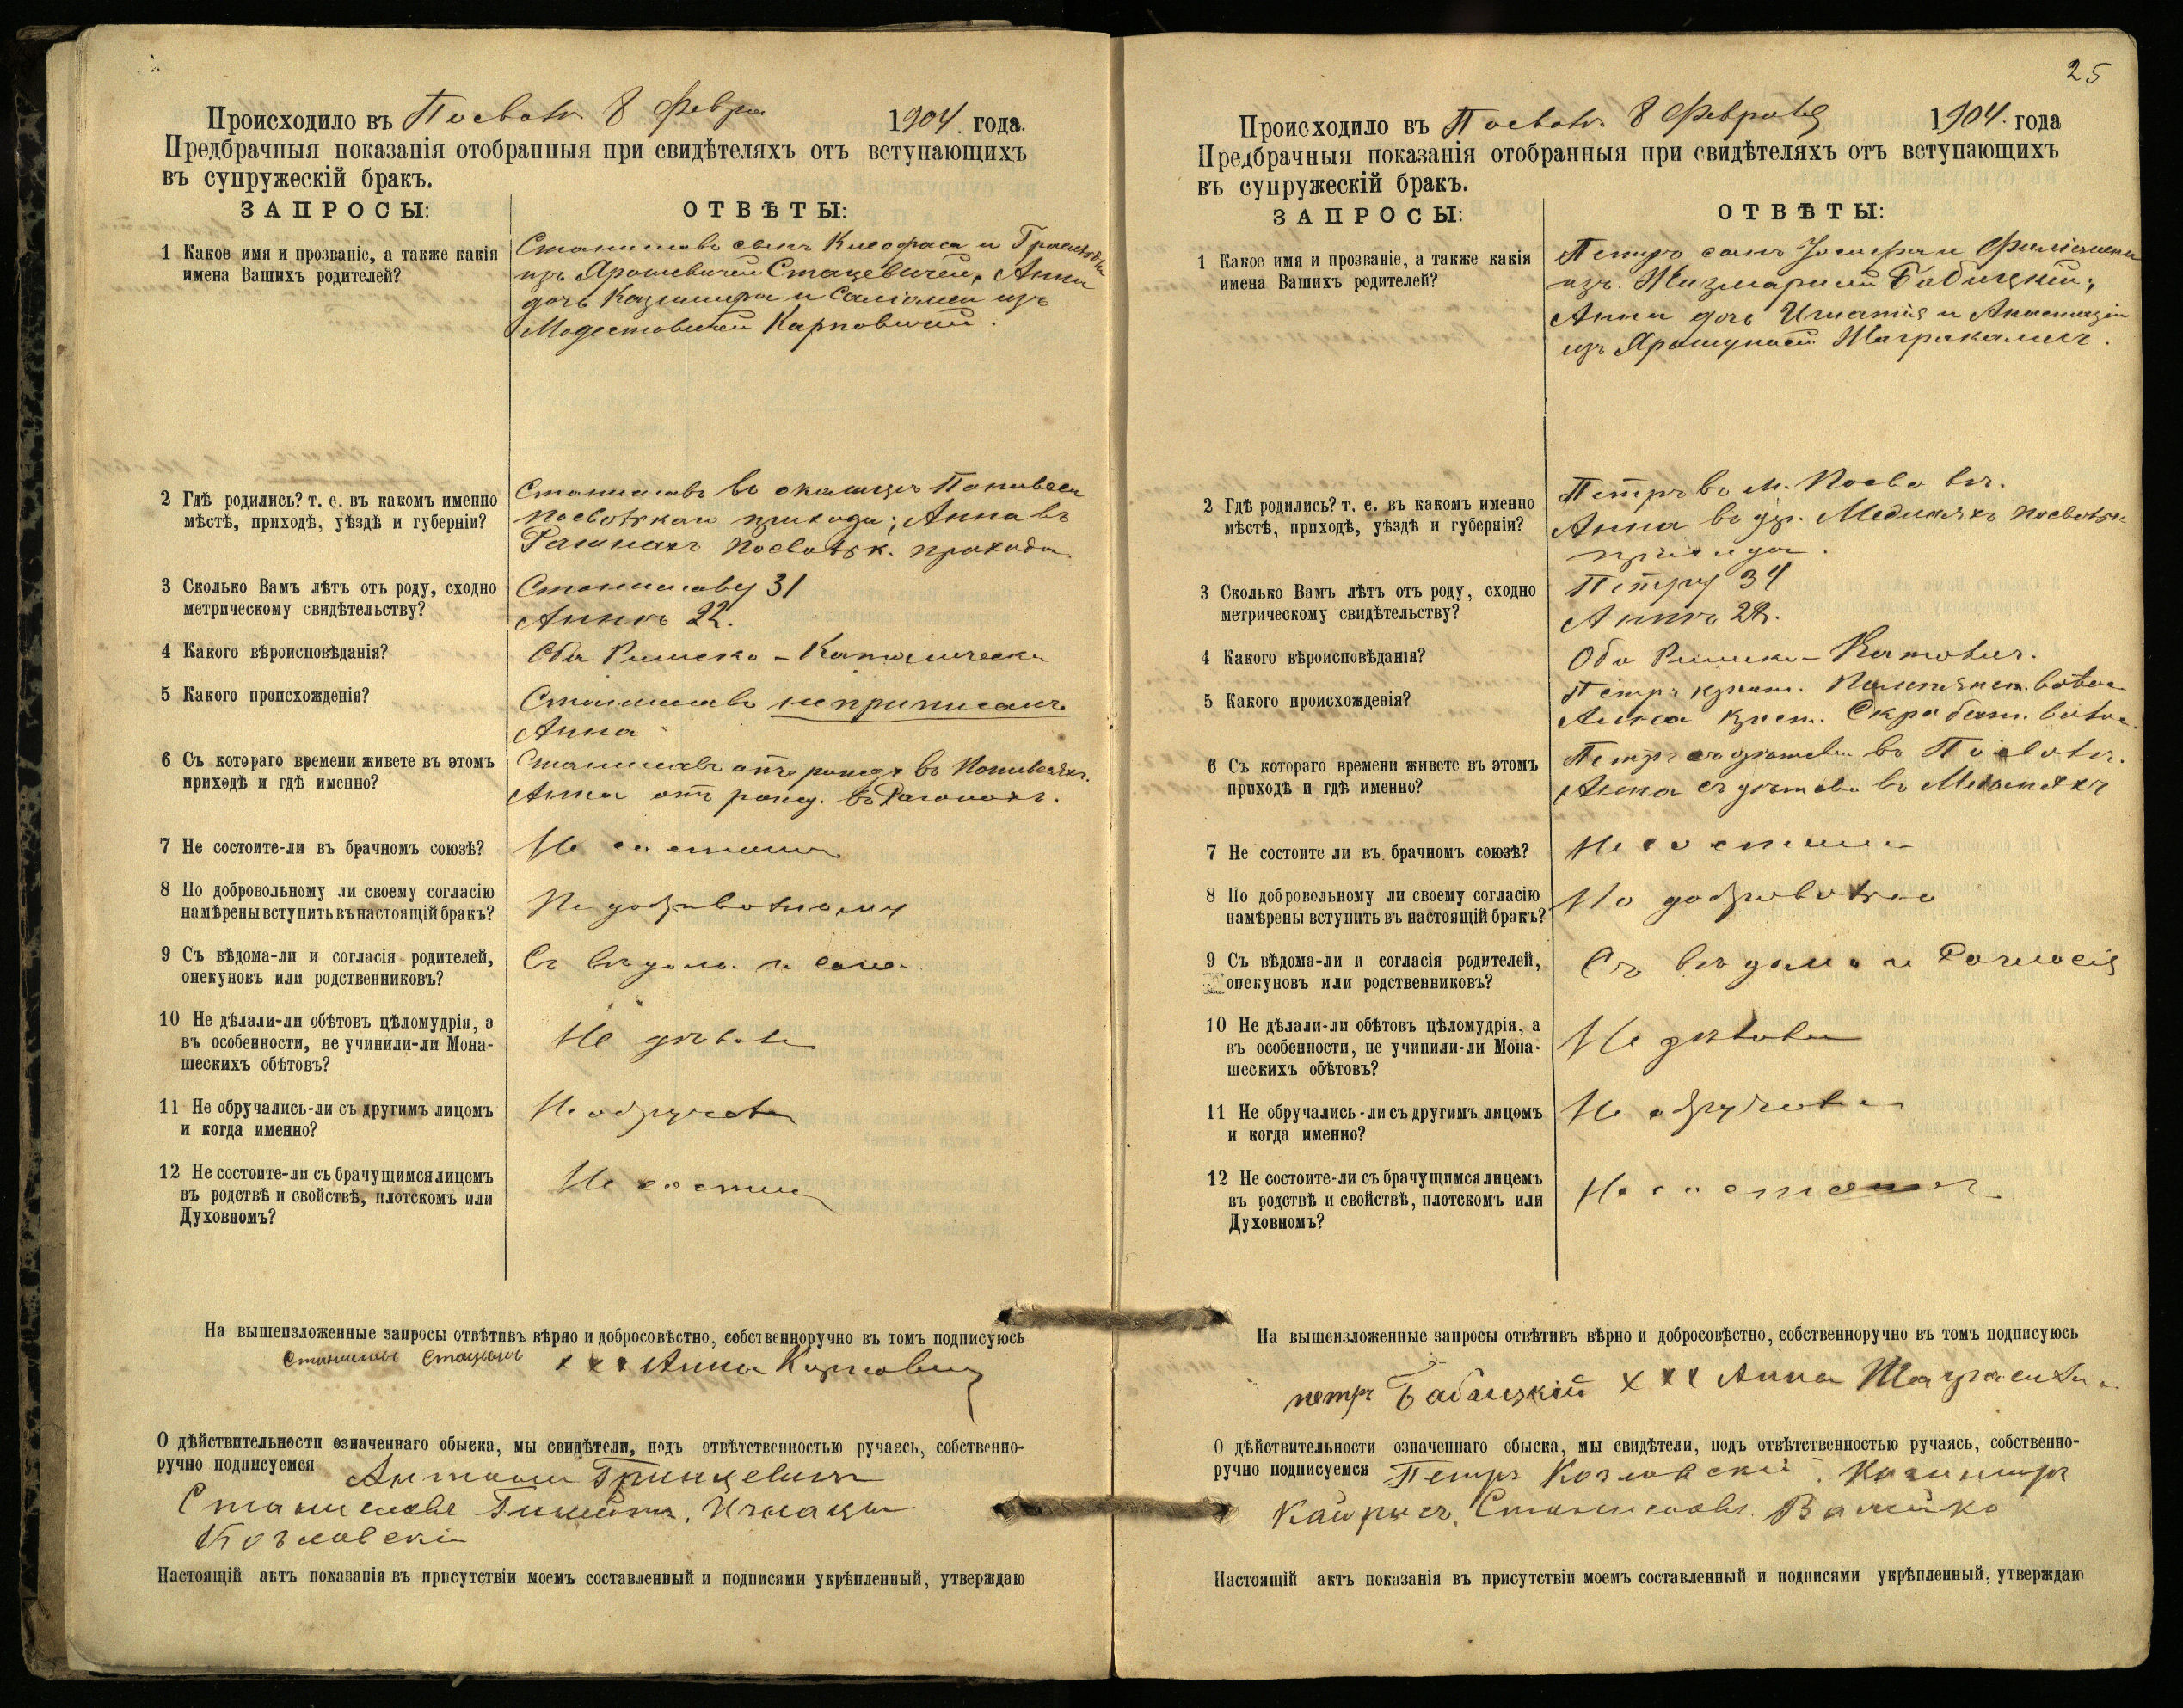 Происходило въ Посволь 8 Февра 1904. года.
Предбрачныя показанія отобранныя при свидѣтеляхъ отъ вступающихъ
въ супружескій бракъ.
ЗАПРОСЫ:
ОТВѢТЫ:
1 Какое имя и прозваніе, а также какія
имена Вашихъ родителей?
Станиславъ сынъ Клеофаса и
изъ Ярошевичей Стацевичей, Анна
дочь Казимира и Саломеи изъ
Модестовичей Карповичей.
2 Гдѣ родились? т. е. въ какомъ именно
мѣстѣ, приходѣ, уѣздѣ и губерніи?
Станиславъ въ околицѣ
Посвольскаго прихода; Анна въ
Посвольск. прихода
3 Сколько Вамъ лѣтъ отъ роду, сходно
метрическому свидѣтельству?
Станиславу 31
Аннѣ 22.
4 Какого вѣроисповѣданія?
Оба Римско-Католическ
5 Какого происхожденія?
Станиславъ неприписанъ
Анна
6 Съ котораго времени живете въ этомъ
приходѣ и гдѣ именно?
Станиславъ отъ рожд въ
Анна отъ рожд. въ
7 Не состоите-ли въ брачномъ союзѣ?
Не состоим
8 По добровольному ли своему согласію
намѣрены вступить въ настоящій бракъ?
По добровольному
9 Съ вѣдома-ли и согласія родителей,
опекуновъ или родственниковъ?
Съ вѣдома и согл.
10 Не дѣлали-ли обѣтовъ цѣломудрія, э
въ особенности, не учинили-ли Мона-
шескихъ обѣтовъ?
Не дѣлали
11 Не обручались-ли съ другимъ лицомъ
и когда именно?
Не обручали
12 Не состоите-ли съ брачущимся лицемъ
въ родствѣ и свойствѣ, плотскомъ или
Духовномъ?
Не состоим
На вышеизложенные запросы отвѣтивъ вѣрно и добросовѣстно, собственноручно въ томъ подписуюсь
Станиславъ xxx Анна Карпович
О дѣйствительности означеннаго обыска, мы свидѣтели, подъ отвѣтственностью ручаясь, собственно-
ручно подписуемся Антони Гринцевичъ
Станиславъ Игнацы
Козловскі
Настоящій актъ показанія въ присутствіи моемъ составленный и подписями укрѣпленный, утверждаю
25
Происходило въ Посволь 8 Февраля 1904. года
Предбрачныя показанія отобранныя при свидѣтеляхъ отъ вступающихъ
въ супружескій бракъ.
ЗАПРОСЫ:
ОТВѢТЫ:
1 Какое имя и прозваніе, а также какія
имена Вашихъ родителей?
Петръ сынъ Іосифа и Филомены
изъ Бабицкій,
Анна дочь Игнатія и Анастазіи
изъ
2 Гдѣ родились? т. е. въ какомъ именно
мѣстѣ, приходѣ, уѣздѣ и губерніи?
Петръ въ м. Посволь.
Анна въ дер. Посвольск
прихода.
3 Сколько Вамъ лѣтъ отъ роду, сходно
метрическому свидѣтельству?
Петру 34
Аннѣ
4 Какого вѣроисповѣданія?
Оба Римско-Католич.
5 Какого происхожденія?
Петръ крест. волос
Анна крест. волос.
6 Съ котораго времени живете въ этомъ
приходѣ и гдѣ именно?
Петръ съ дѣтства въ Посволь.
Анна съ дѣтства въ
7 Не состоите ли въ брачномъ союзѣ?
Не состоим
8 По добровольному ли своему согласію
намѣрены вступить въ настоящій бракъ?
По добровольно
9 Съ вѣдома-ли и согласія родителей,
опекуновъ или родственниковъ?
Съ вѣдома и согласія
10 Не дѣлали-ли обѣтовъ цѣломудрія, а
въ особенности, не учинили-ли Мона-
шескихъ обѣтовъ?
Не дѣлали
11 Не обручались-ли съ другимъ лицомъ
и когда именно?
Не обручали
12 Не состоите-ли съ брачущимся лицемъ
въ родствѣ и свойствѣ, плотскомъ или
Духовномъ?
Не состоим
На вышеизложенные запросы отвѣтивъ вѣрно и добросовѣстно, собственноручно въ томъ подписуюсь
петръ Бабицкій xxx Анна
О дѣйствительности означеннаго обыска, мы свидѣтели, подъ отвѣтственностью ручаясь, собственно-
ручно подписуемся Петръ Козловскій, Казимиръ
Кайрысъ, Станиславъ Валейко
Настоящій актъ показанія въ присутствіи моемъ составленный и подписями укрѣпленный, утверждаю